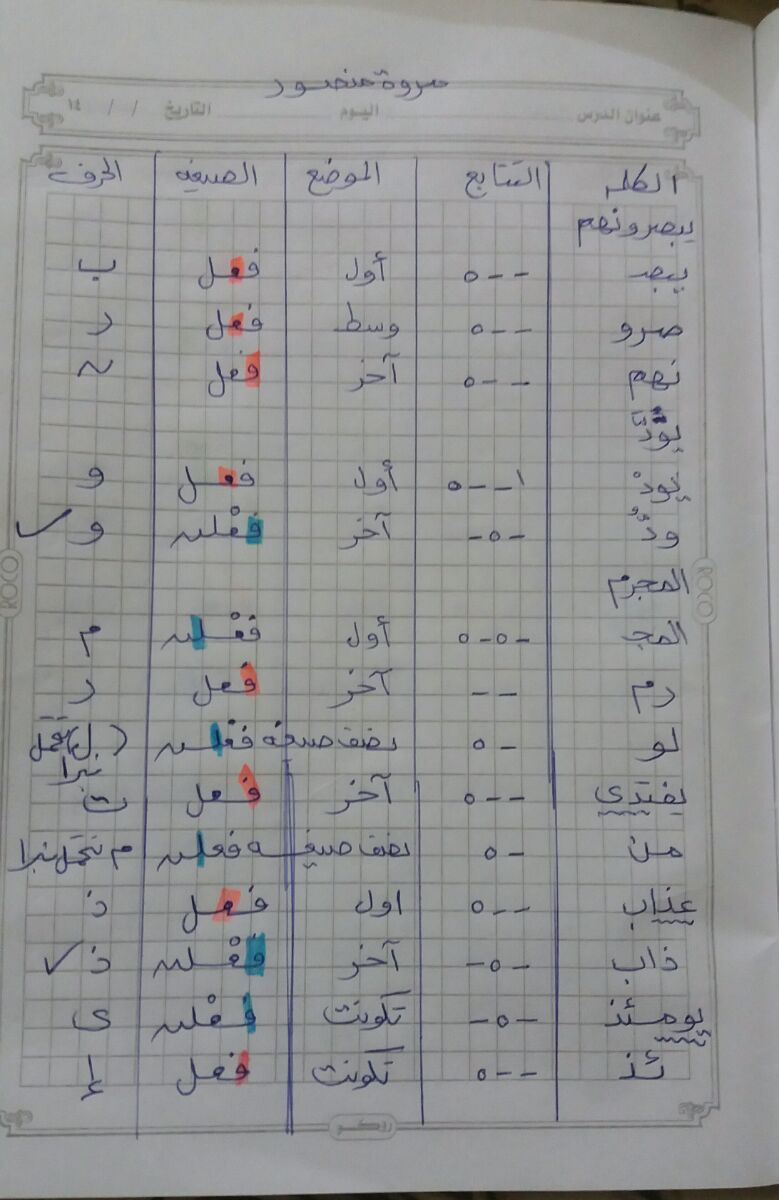 مروة منصور
عنوان الدرس اليوم التاريخ / / ١٤
الكلمه التتابع الموضع الصيغه الحرف
يبصرونهم
يبصر --ه أول فعل ب
صرو --ه وسط فعل ر
نهم --ه آخر فعل
يودُّ
يودْ --ه أول فعل و
ودُّ -ه- آخر ففْلن و ✓
المجرم
المجـ -ه-ه أول ففْلن م
رم -- آخر فعل ر
لو -ه نصف صيغة ففلن
يفتدى --ه آخر فعل ت
من -ه نصف صيغه فعلن م تحتمل نبرا
عذاب --ه اول فعل ذ
ذاب -ه- آخر ففْلن ذ ✓
يومئذ -ه- تكونت ففْلن ى
ئذ --ه تكونت فعل إ
ROCO
ROCO
روكو